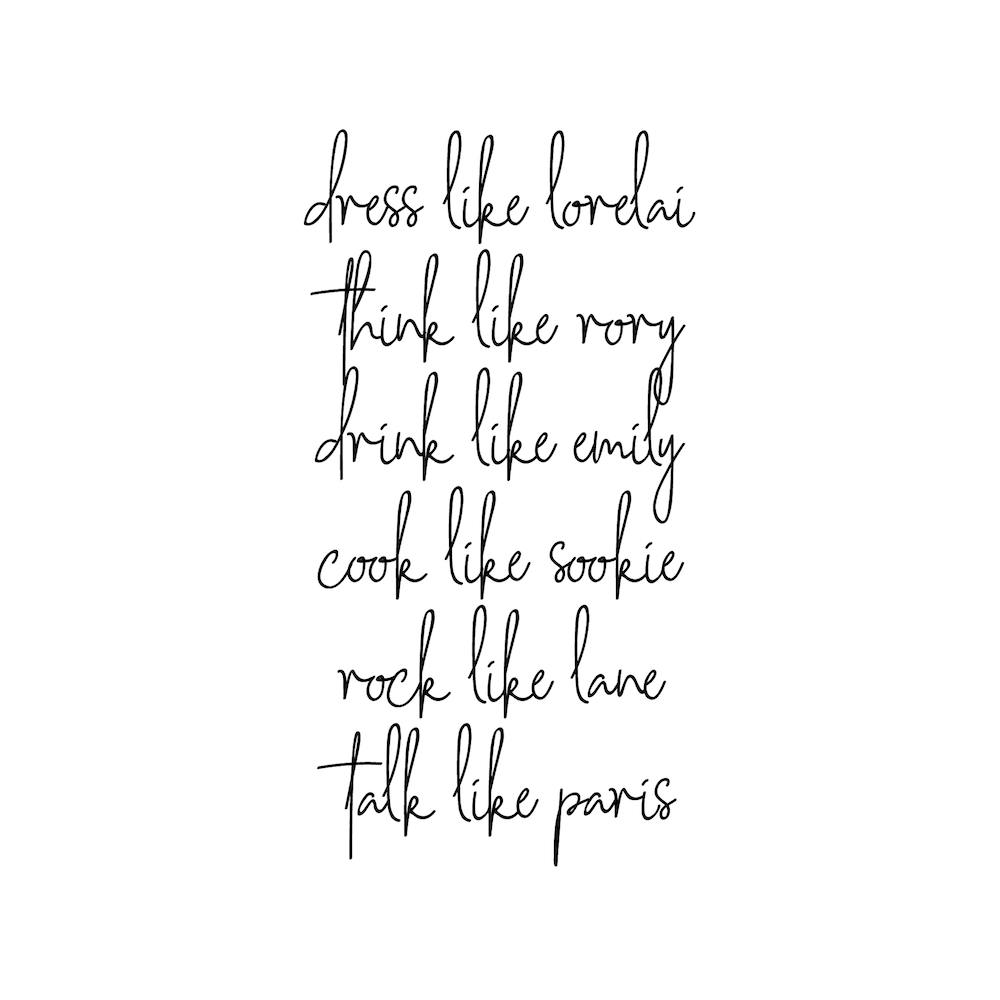 dress like lorelai
think like rory
drink like emily
cook like sookie
rock like lane
talk like paris